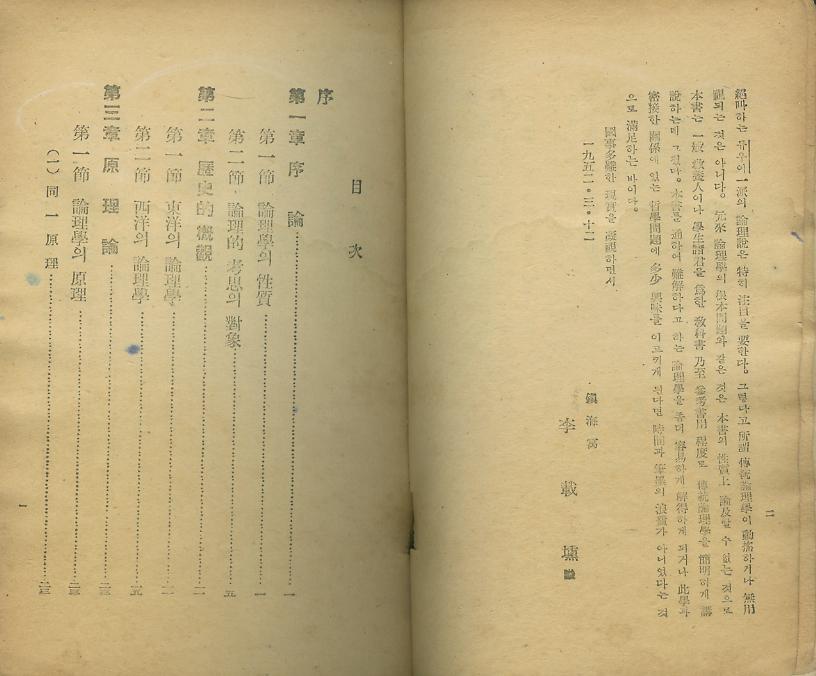 二
하는 一派의 論理說은 特히 注目을 要한다. 그렇다고 所謂 傳統論理學이 動搖하거나 無用
視되는 것은 아니다. 元來 論理學의 根本問題와 같은 것은 本書의 性質上 論及할 수 없는 것으로
本書는 一般 敎養人이나 學生諸君을 爲한 敎科書 乃至 參考書用 程度로 傳統論理學을 簡明하게 講
說하는데 그쳤다. 本書를 通하여 難解하다고 하는 論理學을 좀더 容易하게 解得하게 되거나 此學과
密接한 關係에 있는 哲學問題에 多少 興味를 이르키게 된다면 時間과 筆墨의 浪費가 아니었다는 것
으로 滿足하는 바이다.
國事多難한 現實을 凝視하면서
一九五二•三•十二
鎭海寓
李載壎
目次
序
第一章 序論 一
第一節 論理學의 性質 一
第二節 論理的 考思의 對象 五
第二章 歷史的 槪觀 一一
第一節 東洋의 論理學 一一
第二節 西洋의 論理學 一九
第三章 原理論 二三
第一節 論理學의 原理 二三
(一) 同一原理 二三
一